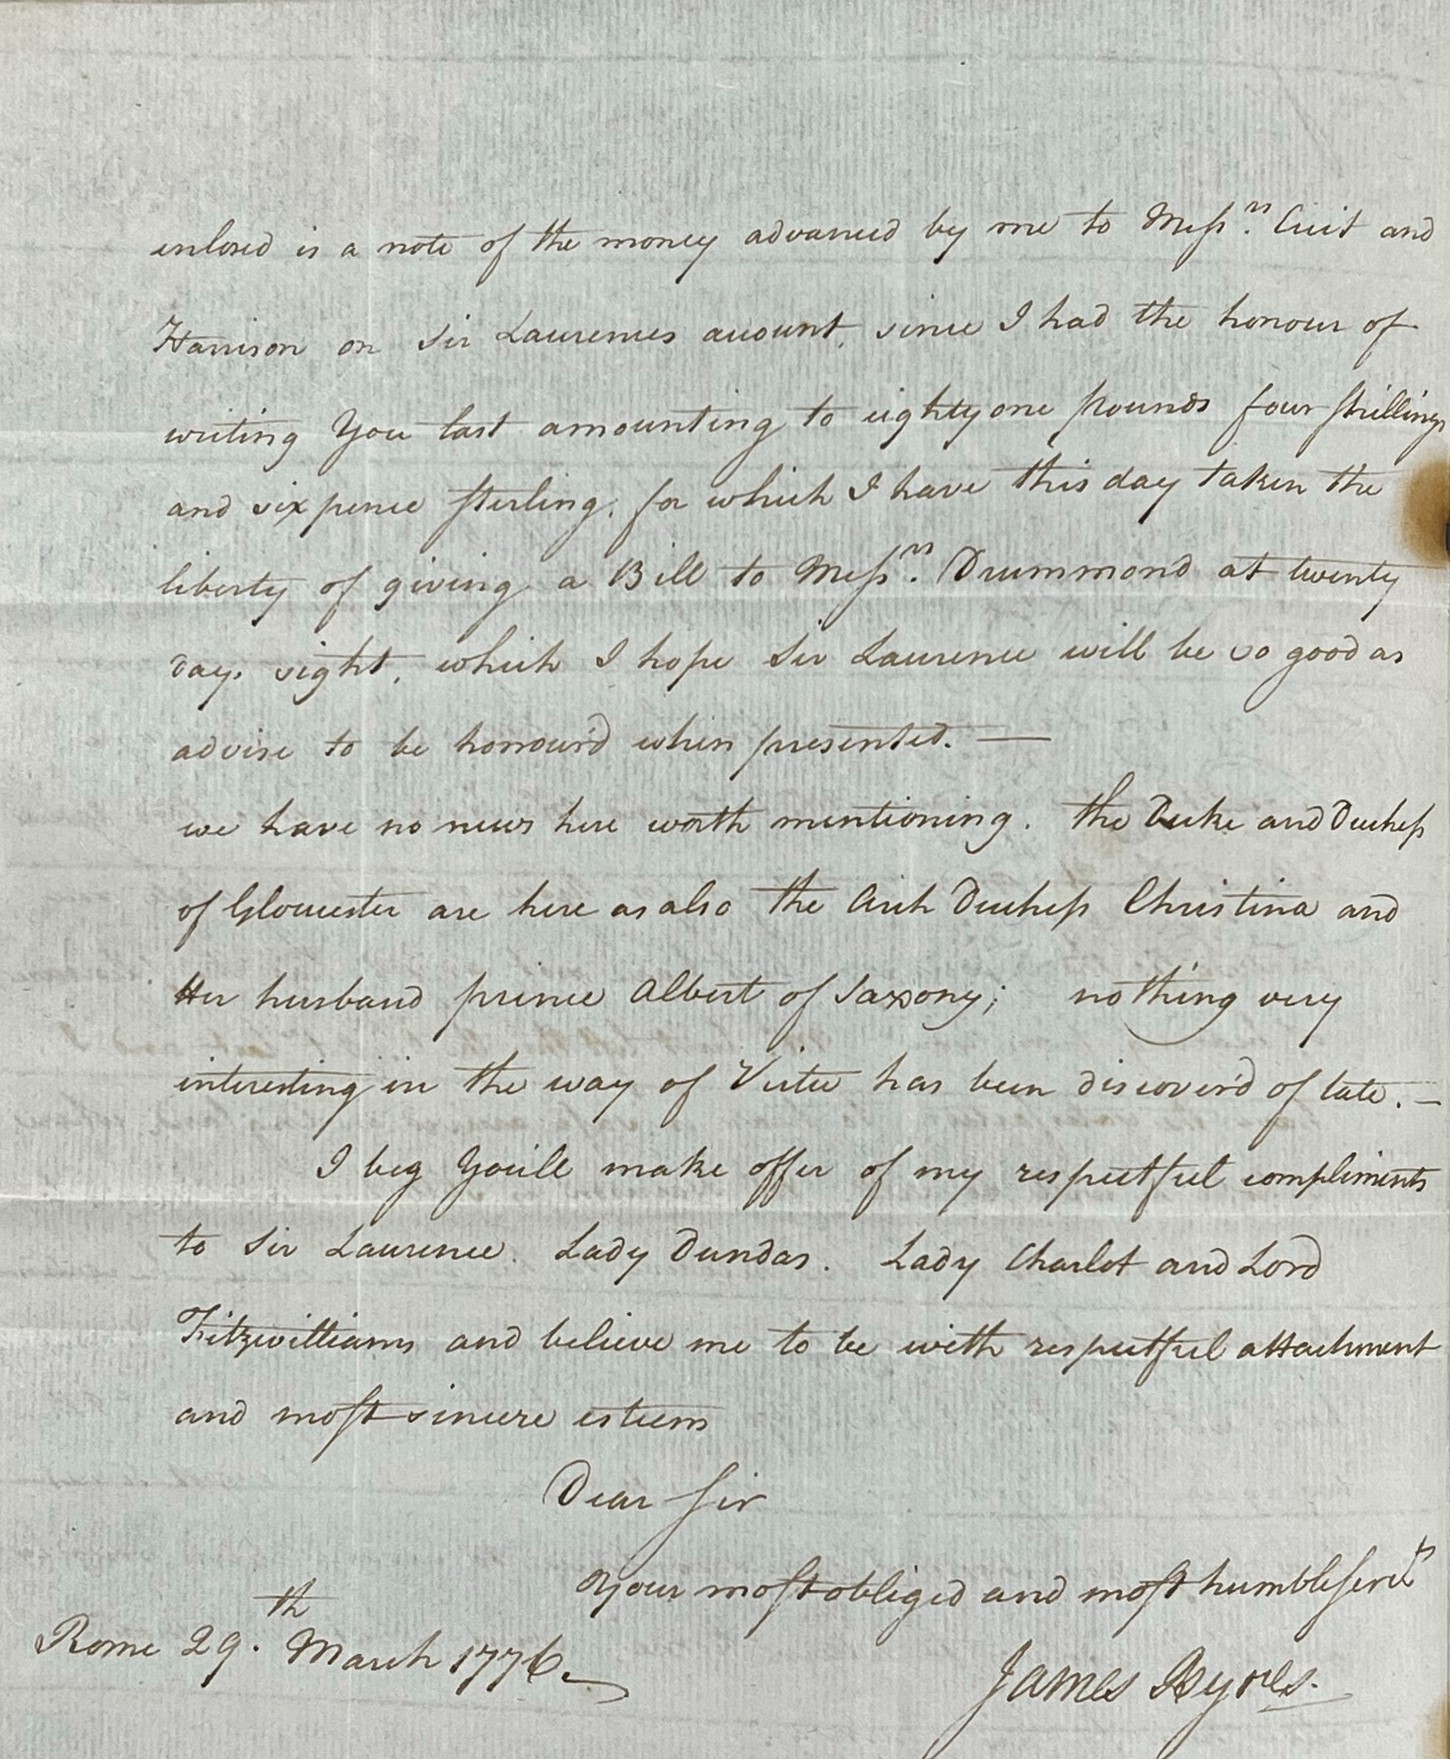 enlosed is a note of the money advanced by me to Mess.rs Cuit and
Harrison on Sir Laurences account, since I had the honour of
writing You last amounting to eighty one pounds four shillings
and six pence sterling. for which I have this day taken the
liberty of giving a Bill to Mess.rs Drummond at twenty
days sight, which I hope Sir Laurence will be so good as
advise to be honour'd when presented. —
we have no news here worth mentioning. the Duke and Duchess
of Glocester are here as also the Arch Duchess Christina and
Her husband prince Albert of Saxony; nothing very
interesting in the way of Virtu has been discover'd of late. —
I beg You'll make offer of my respectful compliments
to Sir Laurence. Lady Dundas. Lady Charlot and Lord
Fitzwilliams and believe me to be with respectful attachment
and most sincere esteem
Dear Sir
Your most obliged and most humble servt
Rome 29.th March 1776.
James Byres.